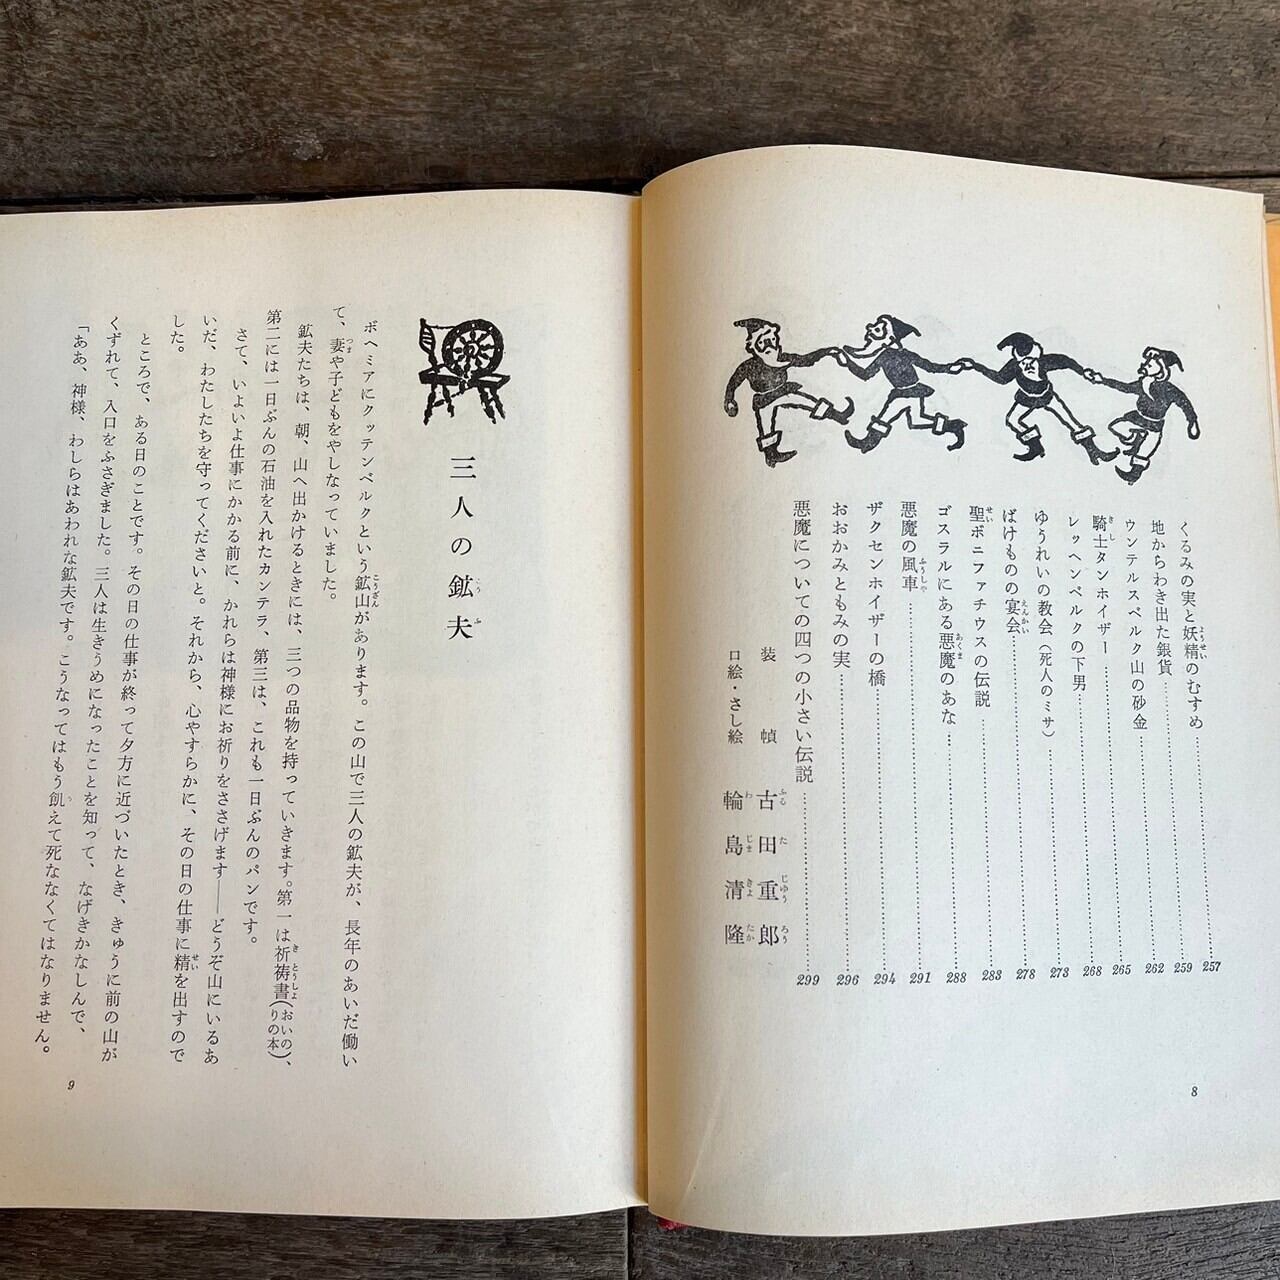 くるみの実と妖精のむすめ……257
地からわき出た銀貨……259
ウンテルスベルク山の砂金……262
騎士タンホイザー……265
レッヘンベルクの下男……268
ゆうれいの教会（死人のミサ）……273
ばけものの宴会……278
聖ボニファチウスの伝説……283
ゴスラルにある悪魔のあな……288
悪魔の風車……291
ザクセンホイザーの橋……294
おおかみともみの実……296
悪魔についての四つの小さい伝説……299
装幀 古田重郎
口絵・さし絵 輪島清隆
8
三人の鉱夫
ボヘミアにクッテンベルクという鉱山があります。この山で三人の鉱夫が、長年のあいだ働い
て、妻や子どもをやしなっていました。
鉱夫たちは、朝、山へ出かけるときには、三つの品物を持っていきます。第一は祈祷書（おいのりの本）、
第二には一日ぶんの石油を入れたカンテラ、第三は、これも一日ぶんのパンです。
さて、いよいよ仕事にかかる前に、かれらは神様にお祈りをささげます――どうぞ山にいるあ
いだ、わたしたちを守ってくださいと。それから、心やすらかに、その日の仕事に精を出すので
した。
ところで、ある日のことです。その日の仕事が終って夕方に近づいたとき、きゅうに前の山が
くずれて、入口をふさぎました。三人は生きうめになったことを知って、なげきかなしんで、
「ああ、神様、わしらはあわれな鉱夫です。こうなってはもう飢えて死ななくてはなりません。
9